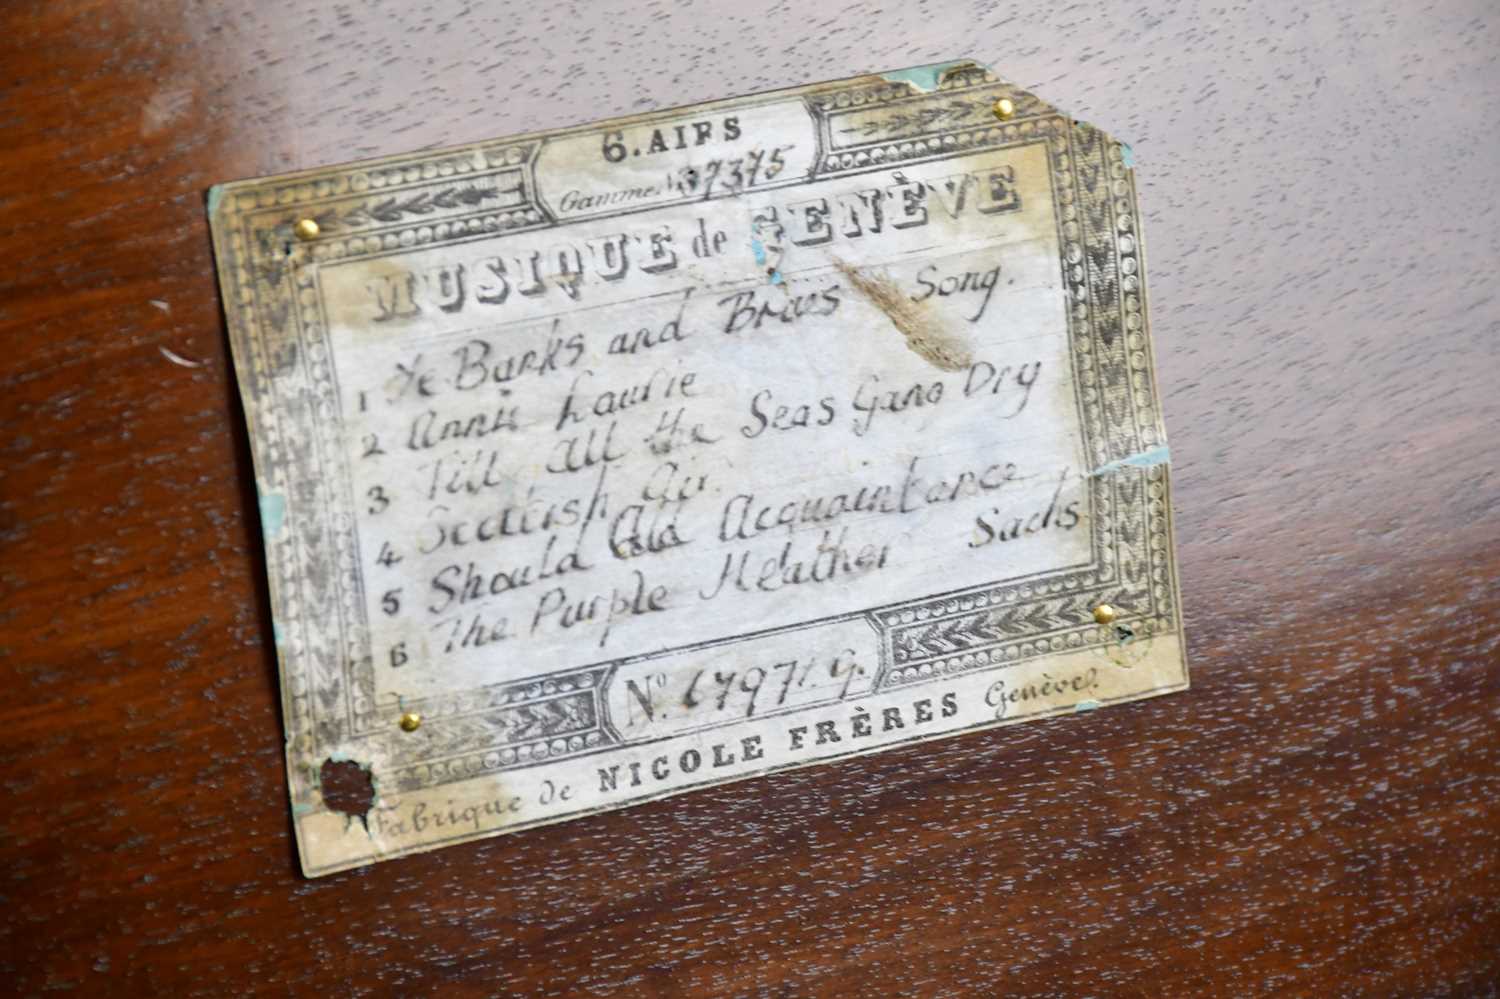 6. AIRS
Gamme No 37375
MUSIQUE de GENÈVE
1 Ye Banks and Braes Song.
2 Annie Laurie
3 Till all the Seas Gang Dry
4 Scottish Air.
5 Should Auld Acquaintance
6 The Purple Heather Sachs
No. 47971 G.
Fabrique de NICOLE FRÈRES Genève.